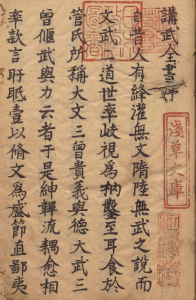 講武全書序
自昔人有絳灌無文隋陸無武之說而
文武二道世率岐視為枘鑿至耳食於
管氏所稱大文三曾貴義與德大武三
曾偃武與力云者于是紳韠流耦愈相
率欬言盱眡壹以脩文為盛節直鄙夷
淺草文庫